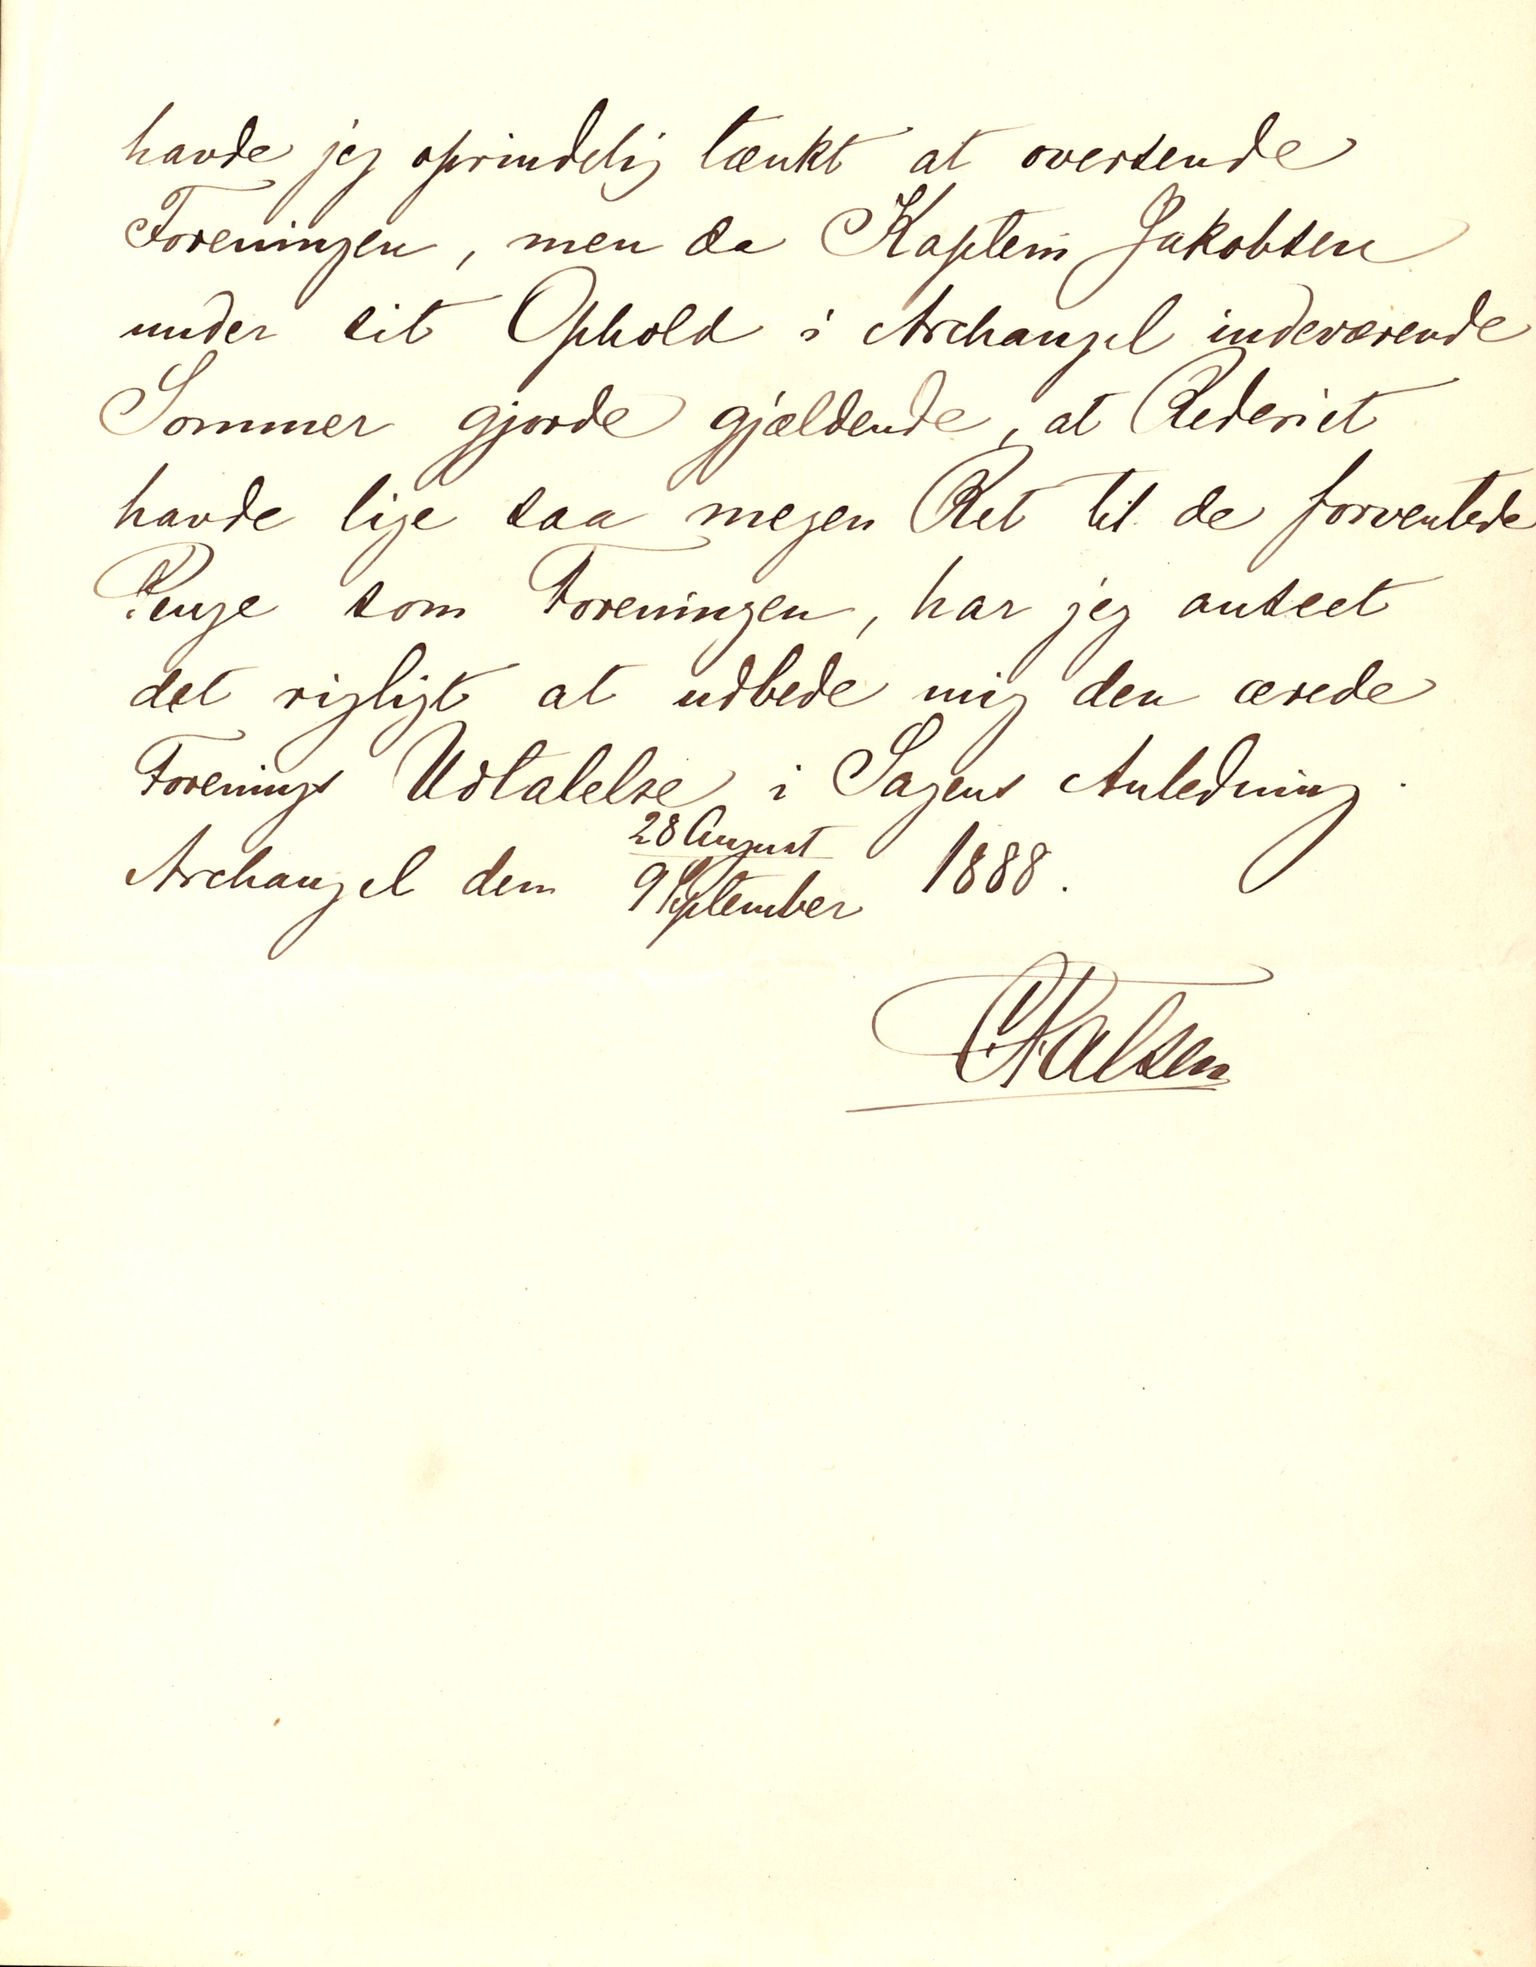 havde jeg oprindelig tænkt at oversende
Foreningen, men da Kaptein Jakobsen
under sit Ophold i Archangel indeværende
Sommer gjorde gjældende, at Rederiet
havde lige saa megen Ret til de forventede
Penge som Foreningen, har jeg anseet
det rigtigt at udbede mig den ærede
Forenings Udtalelse i Sagens Anledning.
28 August
Archangel den 9 September 1888.
CFalsen